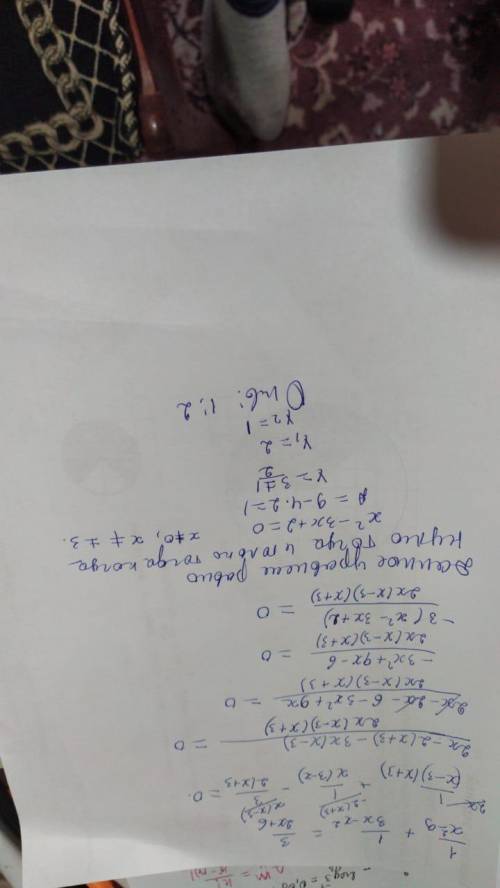 1/(x²-9) + 1/(3x-x²) = 3/(2x+6)
2x 1/((x-3)(x+3)) + -2(x+3) 1/(x(3-x)) - x(x-3) 3/(2(x+3)) = 0.
(2x-2(x+3)-3x(x-3))/(2x(x-3)(x+3)) = 0
(2x-2x-6-3x²+9x)/(2x(x-3)(x+3)) = 0
(-3x²+9x-6)/(2x(x-3)(x+3)) = 0
-3(x²-3x+2)/(2x(x-3)(x+3)) = 0
Данное уравнение равно
нулю тогда и только тогда когда
x²-3x+2=0 x≠0, x≠±3.
D = 9-4·2=1
x = (3±1)/2
x₁=2
x2=1
Отв: 1; 2